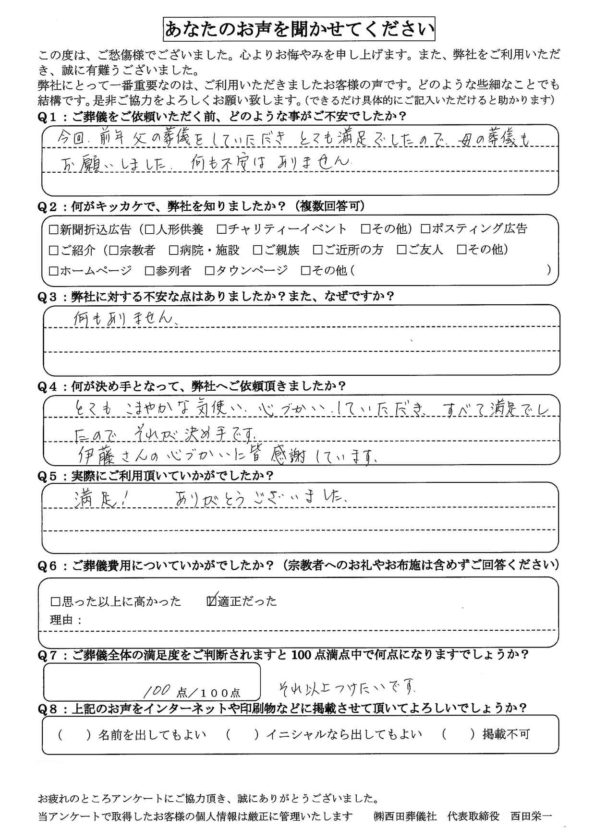 あなたのお声を聞かせてください
この度は、ご愁傷様でございました。心よりお悔やみを申し上げます。また、弊社をご利用いただ
き、誠に有難うございました。
弊社にとって一番重要なのは、ご利用いただきましたお客様の声です。どのような些細なことでも
結構です。是非ご協力をよろしくお願い致します。（できるだけ具体的にご記入いただけると助かります）
Q1：ご葬儀をご依頼いただく前、どのような事がご不安でしたか？
今回、前年 父の葬儀をしていただき とても満足でしたので、母の葬儀も
お願いしました。何も不安は ありません
Q2：何がキッカケで、弊社を知りましたか？（複数回答可）
□新聞折込広告（□人形供養 □チャリティーイベント □その他）□ポスティング広告
□ご紹介（□宗教者 □病院・施設 □ご親族 □ご近所の方 □ご友人 □その他）
□ホームページ □参列者 □タウンページ □その他（ ）
Q3：弊社に対する不安な点はありましたか？また、なぜですか？
何もありません、
Q4：何が決め手となって、弊社へご依頼頂きましたか？
とても こまやかな気使い、心づかい、していただき すべて満足でし
たので それが決め手です。
伊藤さんの心づかいに皆 感謝しています、
Q5：実際にご利用頂いていかがでしたか？
満足！ ありがとうございました、
Q6：ご葬儀費用についていかがでしたか？（宗教者へのお礼やお布施は含めずご回答ください）
□思った以上に高かった ☑適正だった
理由：
Q7：ご葬儀全体の満足度をご判断されますと100点満点中で何点になりますでしょうか？
100 点／100点 それ以上つけたいです。
Q8：上記のお声をインターネットや印刷物などに掲載させて頂いてよろしいでしょうか？
（ ）名前を出してもよい （ ）イニシャルなら出してもよい （ ）掲載不可
お疲れのところアンケートにご協力頂き、誠にありがとうございました。
当アンケートで取得したお客様の個人情報は厳正に管理いたします ㈱西田葬儀社 代表取締役 西田栄一